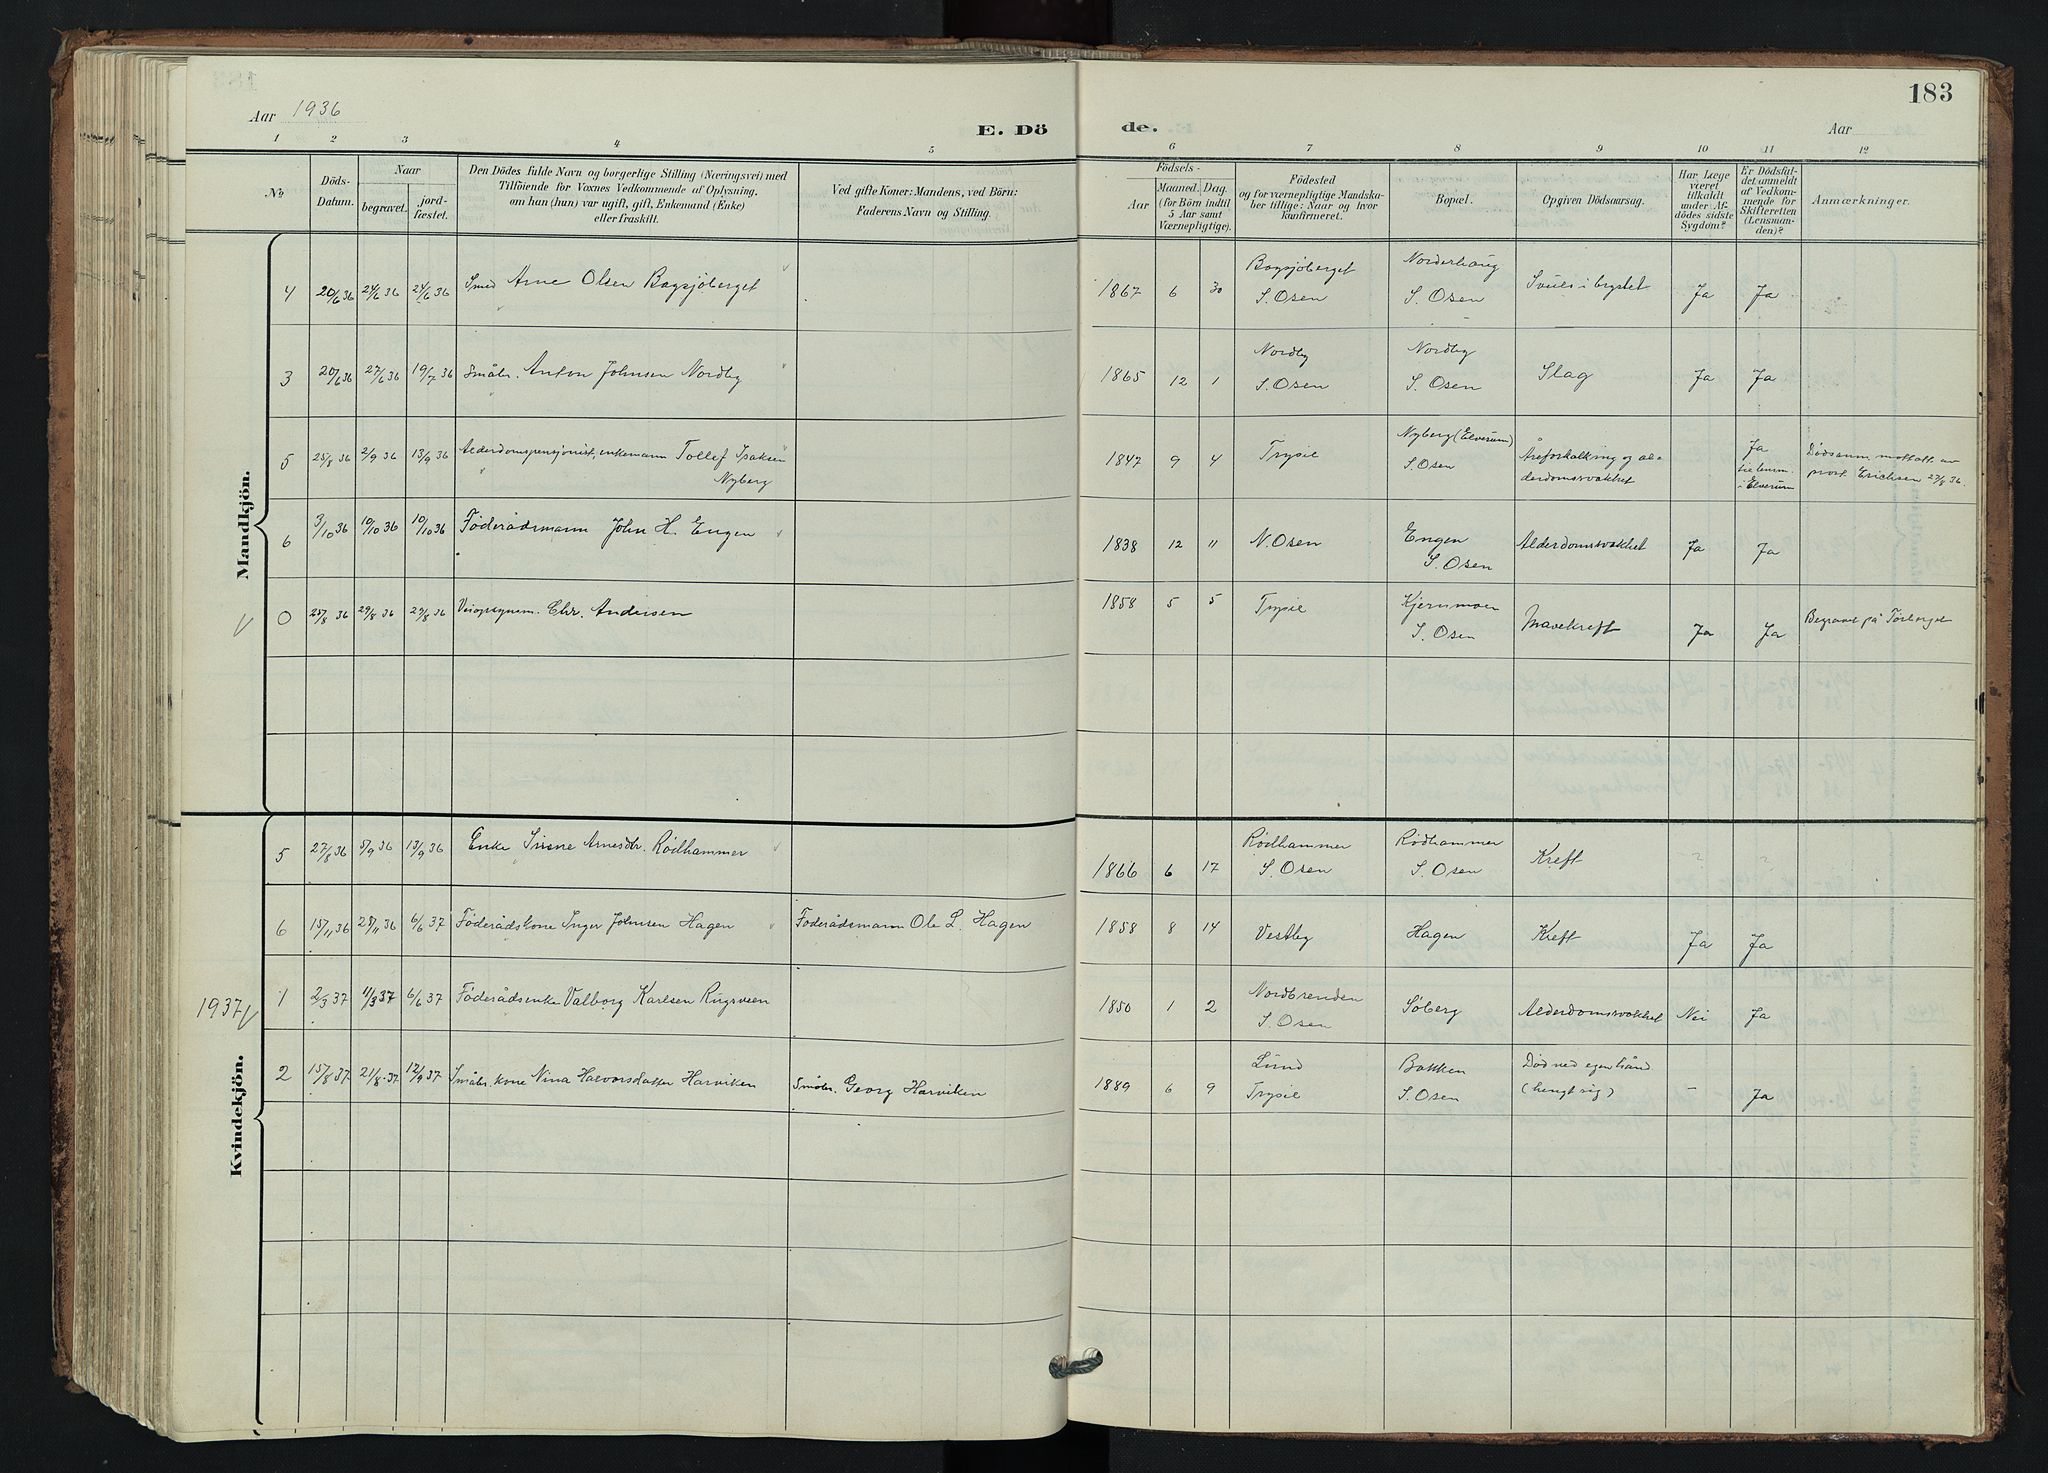 183
Aar 1936
E. Dö
de.
Aar
1 2 3 4 5 6 7 8 9 10 11 12
No
Döds-
Datum.
Naar
begravet.
jord-
fæstet.
Den Dödes fulde Navn og borgerlige Stilling (Næringsvei) med
Tilföiende for Voxnes Vedkommende af Oplysning,
om han (hun) var ugift, gift, Enkemand (Enke)
eller fraskilt.
Ved gifte Koner: Mandens, ved Börn:
Faderens Navn og Stilling.
Födsels-
Aar
Maaned. Dag.
(for Börn indtil
5 Aar samt
Værnepligtige).
Födested
og for værnepligtige Mandska-
ber tillige: Naar og hvor
konfirmeret.
Bopæl.
Opgiven Dödsaarsag.
Har Læge
været
tilkaldt
under Af-
dödes sidste
Sygdom?
Er Dödsfal-
det anmeldt
af Vedkom-
mende for
Skifteretten
(Lensman-
den)?
Anmærkninger.
Mandkjön.
4 20/6 36 24/6 36 24/6 36 Smed Arne Olsen Bagsjöberget 1867 6 30 Bagsjöberget S. Osen Norderhaug S. Osen Svulst i brystet Ja Ja
3 20/6 36 27/6 36 19/7 36 Småbr. Anton Johnsen Nordby 1865 12 1 Nordby S. Osen Nordby S. Osen Slag Ja Ja
5 25/8 36 2/9 36 13/9 36 Alderdomspensjonist, enkemann Tollef Isaksen
Nyberg 1847 9 4 Trysil Nyberg (Elverum) S. Osen Åreforkalkning og al-
derdomssvakhet Ja
i Elverum Dødsanm. mottatt av
prost Erichsen 27/8 36.
6 3/10 36 10/10 36 10/10 36 Føderådsmann John H. Engen 1838 12 11 N. Osen Engen S. Osen Alderdomssvakhet Ja Ja
0 25/8 36 29/8 36 29/8 36 Chr. Andersen 1858 5 5 Trysil Kjernmoen S. Osen Mavekreft Ja Ja Begravet på Tørberget
Kvindekjön.
5 27/8 36 5/9 36 13/9 36 Enke Sirene Arnesdtr. Rødhammer 1866 6 17 Rødhammer S. Osen Rødhammer S. Osen Kreft ? ?
6 15/11 36 25/11 36 6/6 37 Føderådskone Inger Johnsen Hagen Føderådsmann Ole L. Hagen 1858 8 14 Vestby Hagen Kreft Ja Ja
1937 1 2/3 37 11/3 37 6/6 37 Føderådsenke Valborg Karlsen Rugsveen 1850 1 2 Nordbrenden S. Osen Søberg Alderdomssvakhet Nei Ja
2 15/8 37 21/8-37 12/9 37 Småbr. kone Nina Halvorsdatter Harviken Småbr. Georg Harviken 1889 6 9 Lund Trysil Bakken S. Osen Død ved egen hånd
(hengt sig) - Ja